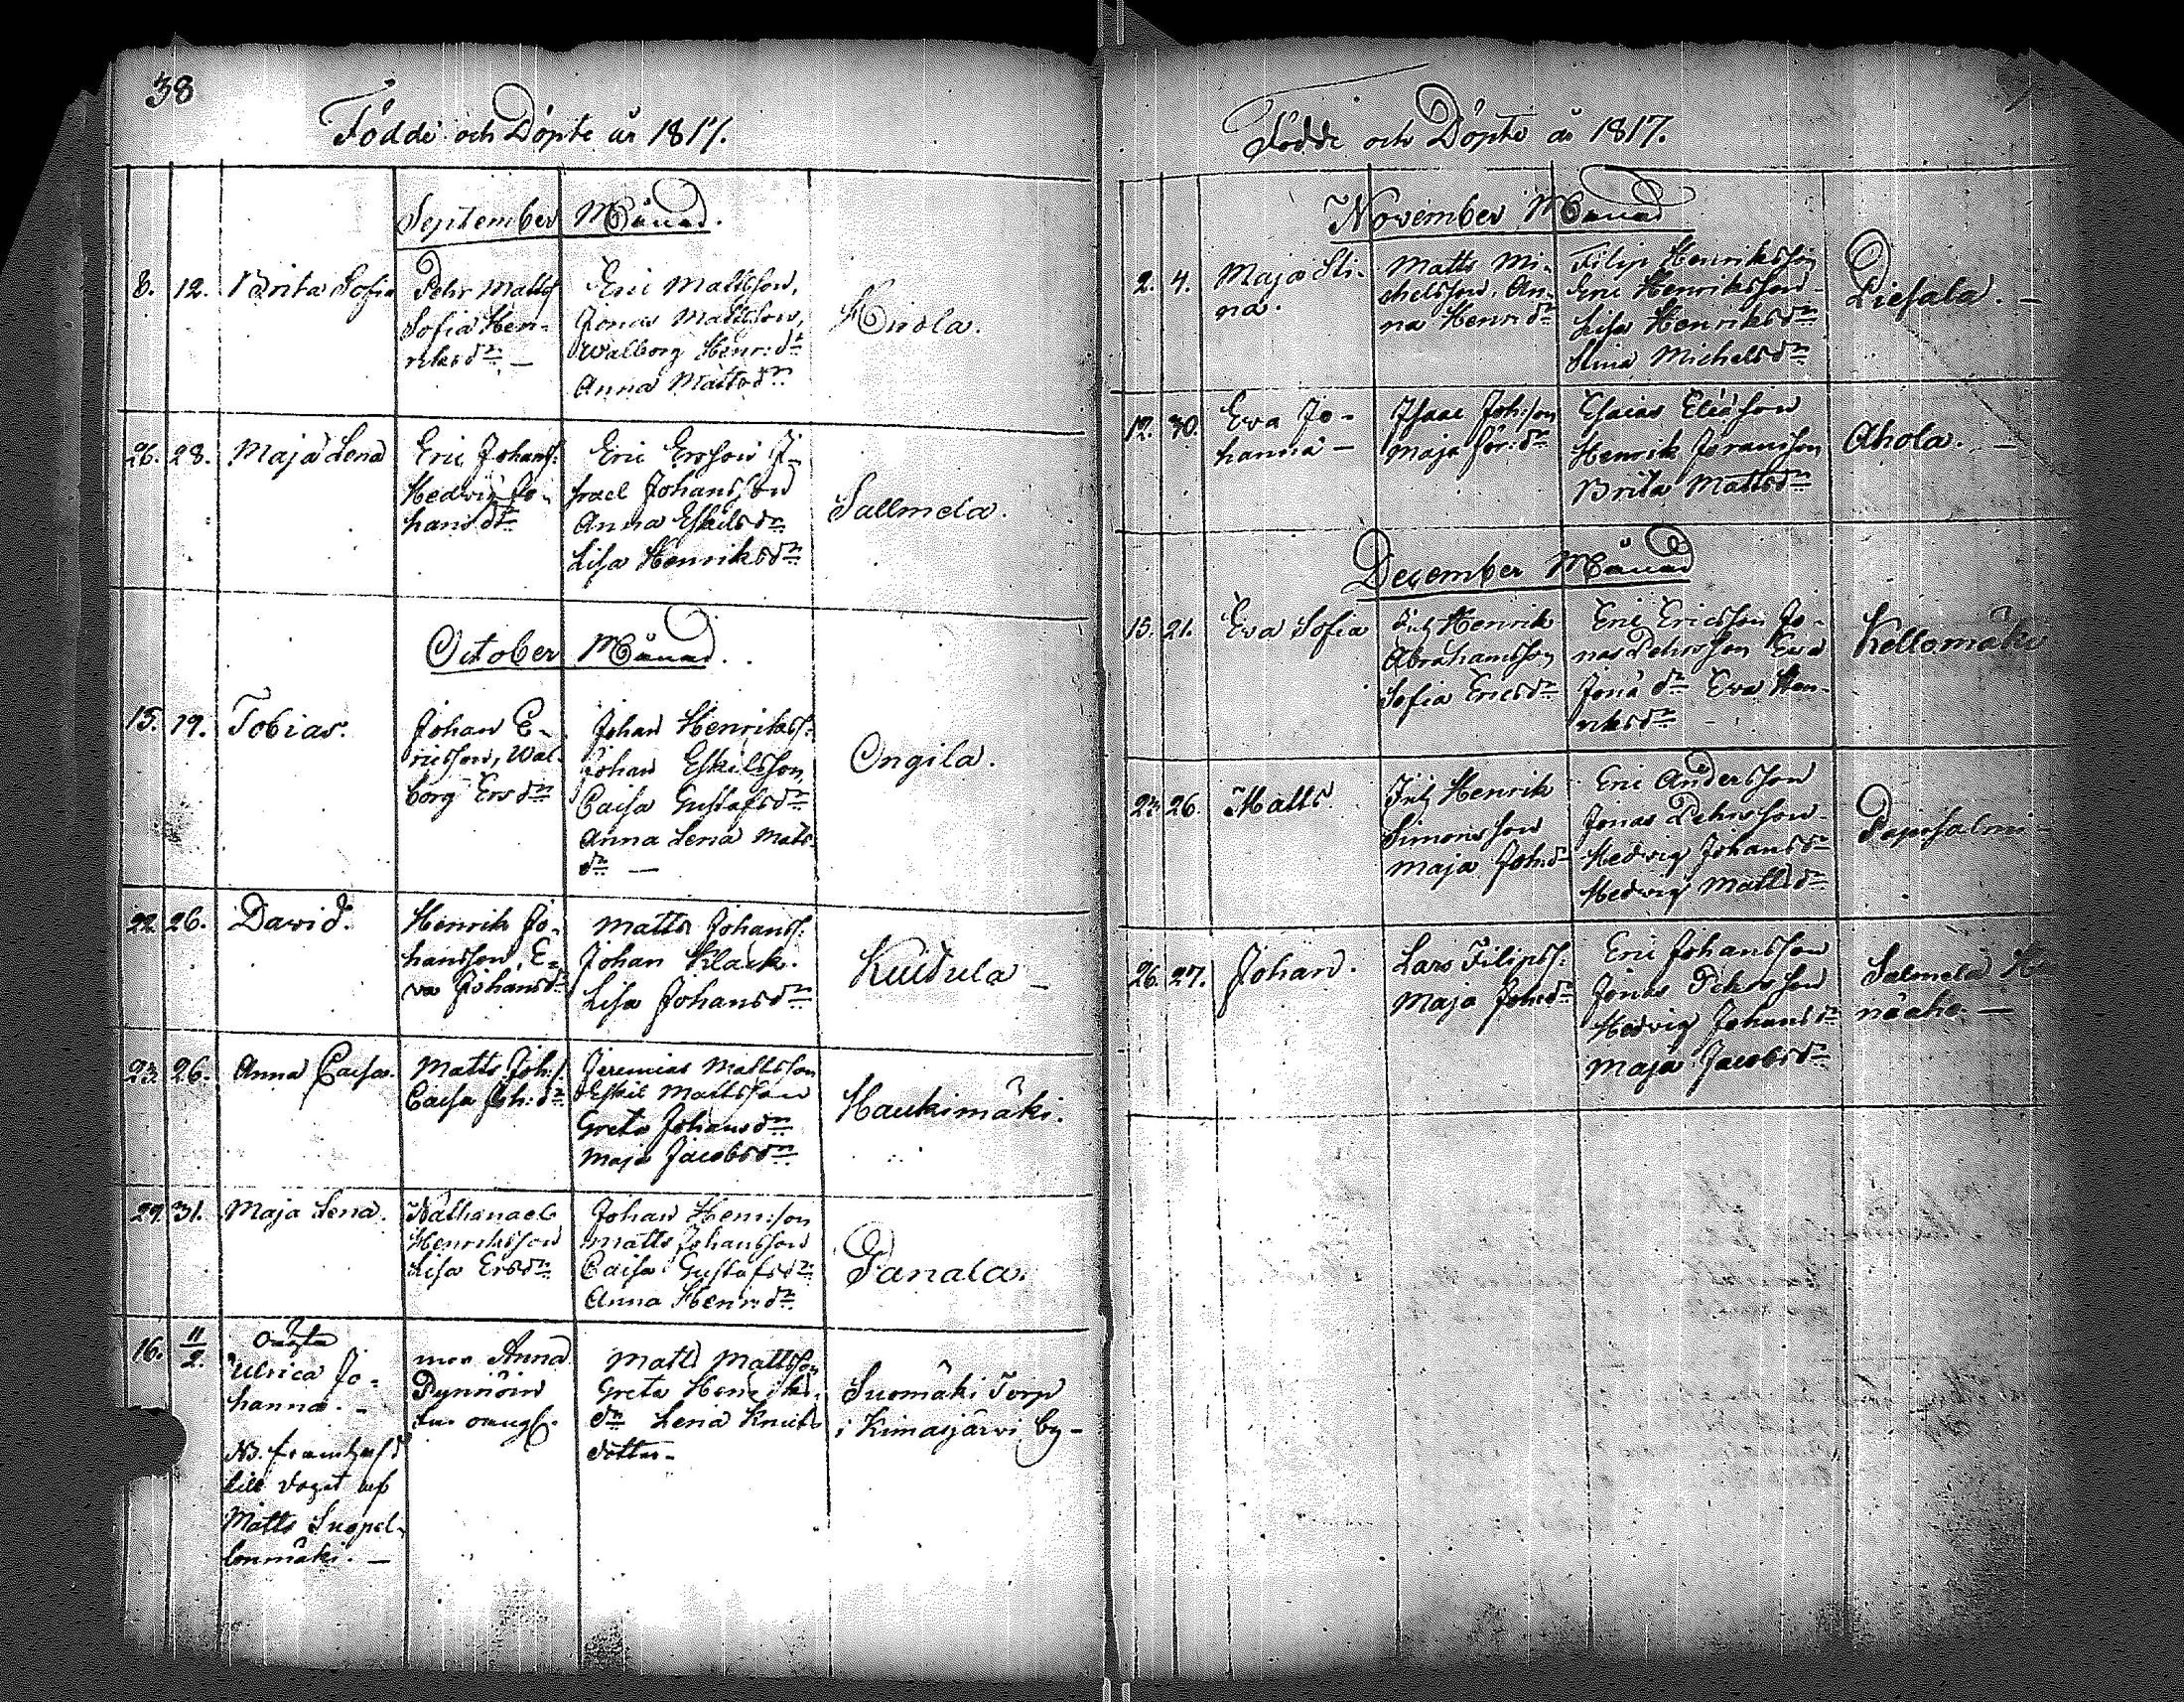 38
Födde och Döpte år 1817.
September Månad.
8. 12. Brita Sofia
Pehr Matts
Sofia Hen-
riksdr. —
Eric Mattsson,
Jonas Mattsson,
Walborg Henr: dr
Anna Mattsdr
Knola.
26. 28. Maja Lena
Eric Johanss:
Hedvig Jo-
hansdr
Eric Ersson J-
srael Johansson
Anna Eskilsdr
Lisa Henriksdr
Sallmela.
October Månad.
15. 19. Tobias.
Johan E-
ricsson, Wal-
borg Ersdr
Johan Henrikss:
Johan Eskilsson,
Caisa Gustafsdr
Anna Lena Mats-
dr —
Ongila.
22. 26. David.
Henrik Jo-
hansson, E-
va Johansdr
Matts Johanss:
Johan Klack.
Lisa Johansdr
Kuudula —
23. 26. Anna Caisa.
Matts Joh: s.
Caisa Joh: dr
Jeremias Mattsson
Eskil Mattsson
Greta Johansdr
Maja Jacobsdr
Haukimäki.
29. 31. Maja Lena.
Nathanael
Henriksson
Lisa Ersdr
Johan Henr:son
Matts Johansson
Caisa Gustafsdr
Anna Henr: dr
Panala.
16. 11/2. Oägta
Ulrica Jo-
hanna. -
mor Anna
Pynnöin
Matts Mattsson
Greta Henriks-
dr Lena Knuts
dotter -
Suomäki Torp
i Kimasjärvi by -
NB. framhafd
till dopet af
Matts Suopel-
lonmäki. —
Födde och Döpte år 1817.
November Månad
2. 4. Maja Sti-
na.
Matts Mi-
chelsson, An-
na Henr: dr
Filip Henriksson
Eric Henriksson
Lisa Henriksdr
Stina Michelsdr
Piesala. —
12. 30. Eva Jo-
hanna —
Isaac Joh:son
Maja Jör: dr
Esaias Eliasson
Henrik Jöransson
Brita Mattsdr
Ahola. —
December Månad
15. 21. Eva Sofia
Henrik
Abrahamsson
Sofia Ericsdr
Eric Ericsson Jo-
nas Pehrsson Eva
Jona dr Eva Hen-
riksdr
Kellomäki
23. 26. Matts.
Henrik
Simonsson
Maja Joh: dr
Eric Andersson
Jonas Pehrsson
Hedvig Johansdr
Hedvig Mattsdr
Papisalmi —
26. 27. Johan.
Lars Filipss:
Maja Joh: dr
Eric Johansson
Jonas Pehrsson
Hedvig Johansdr
Maja Jacobsdr
Salmela
näahe. —